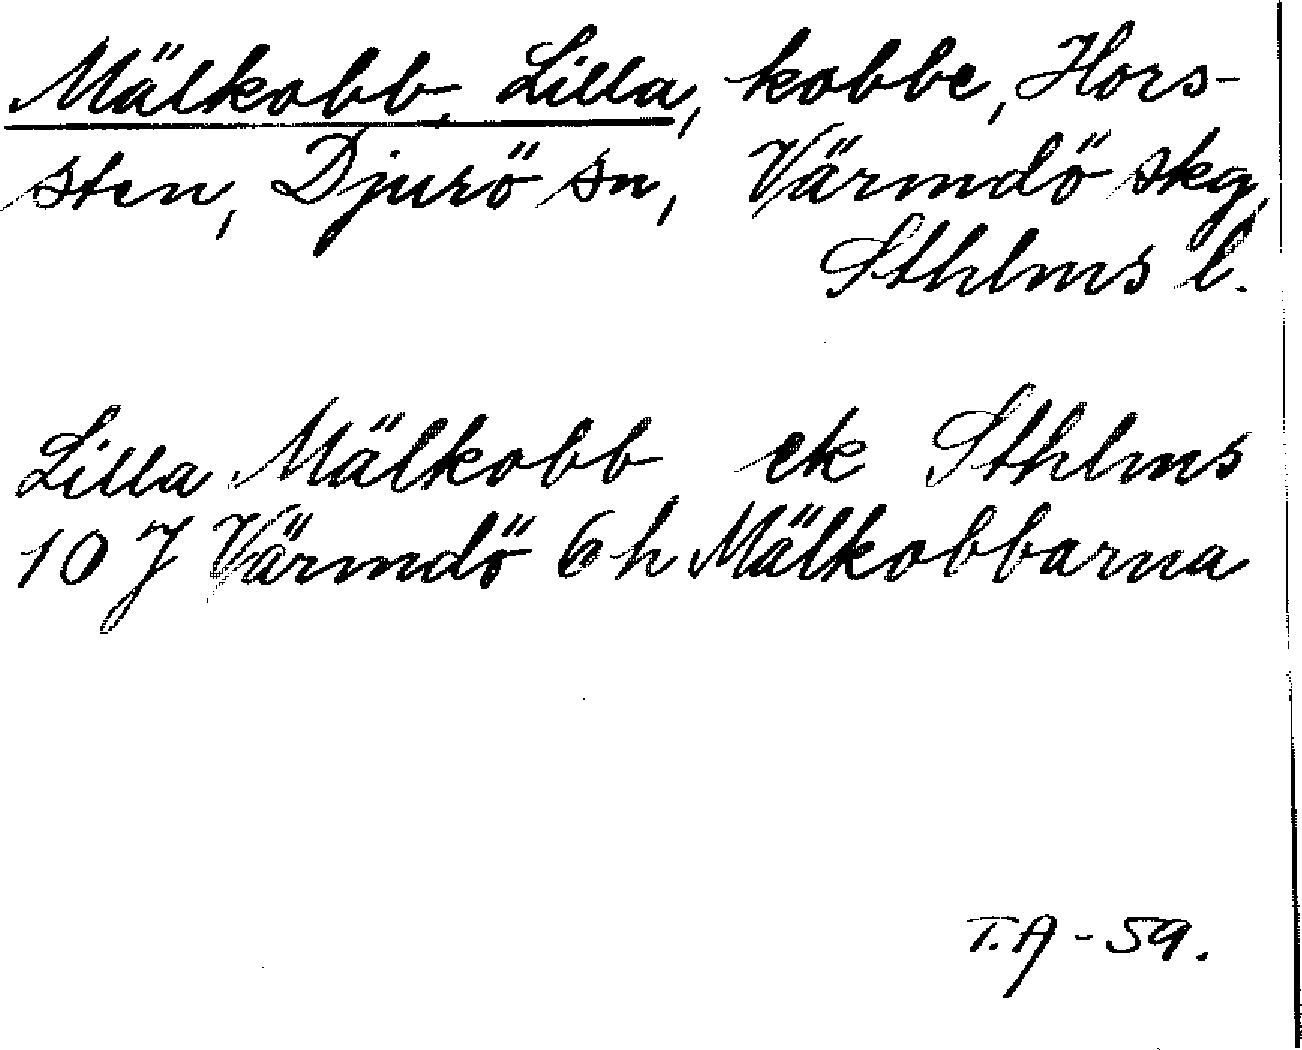 Mälkobb, Lilla, kobbe, Hors-
sten, Djurö sn, Värmdö skg,
Sthlms l.
Lilla Mälkobb ek Sthlms
10 J Värmdö 6 h Mälkobbarna
T.A - 59.